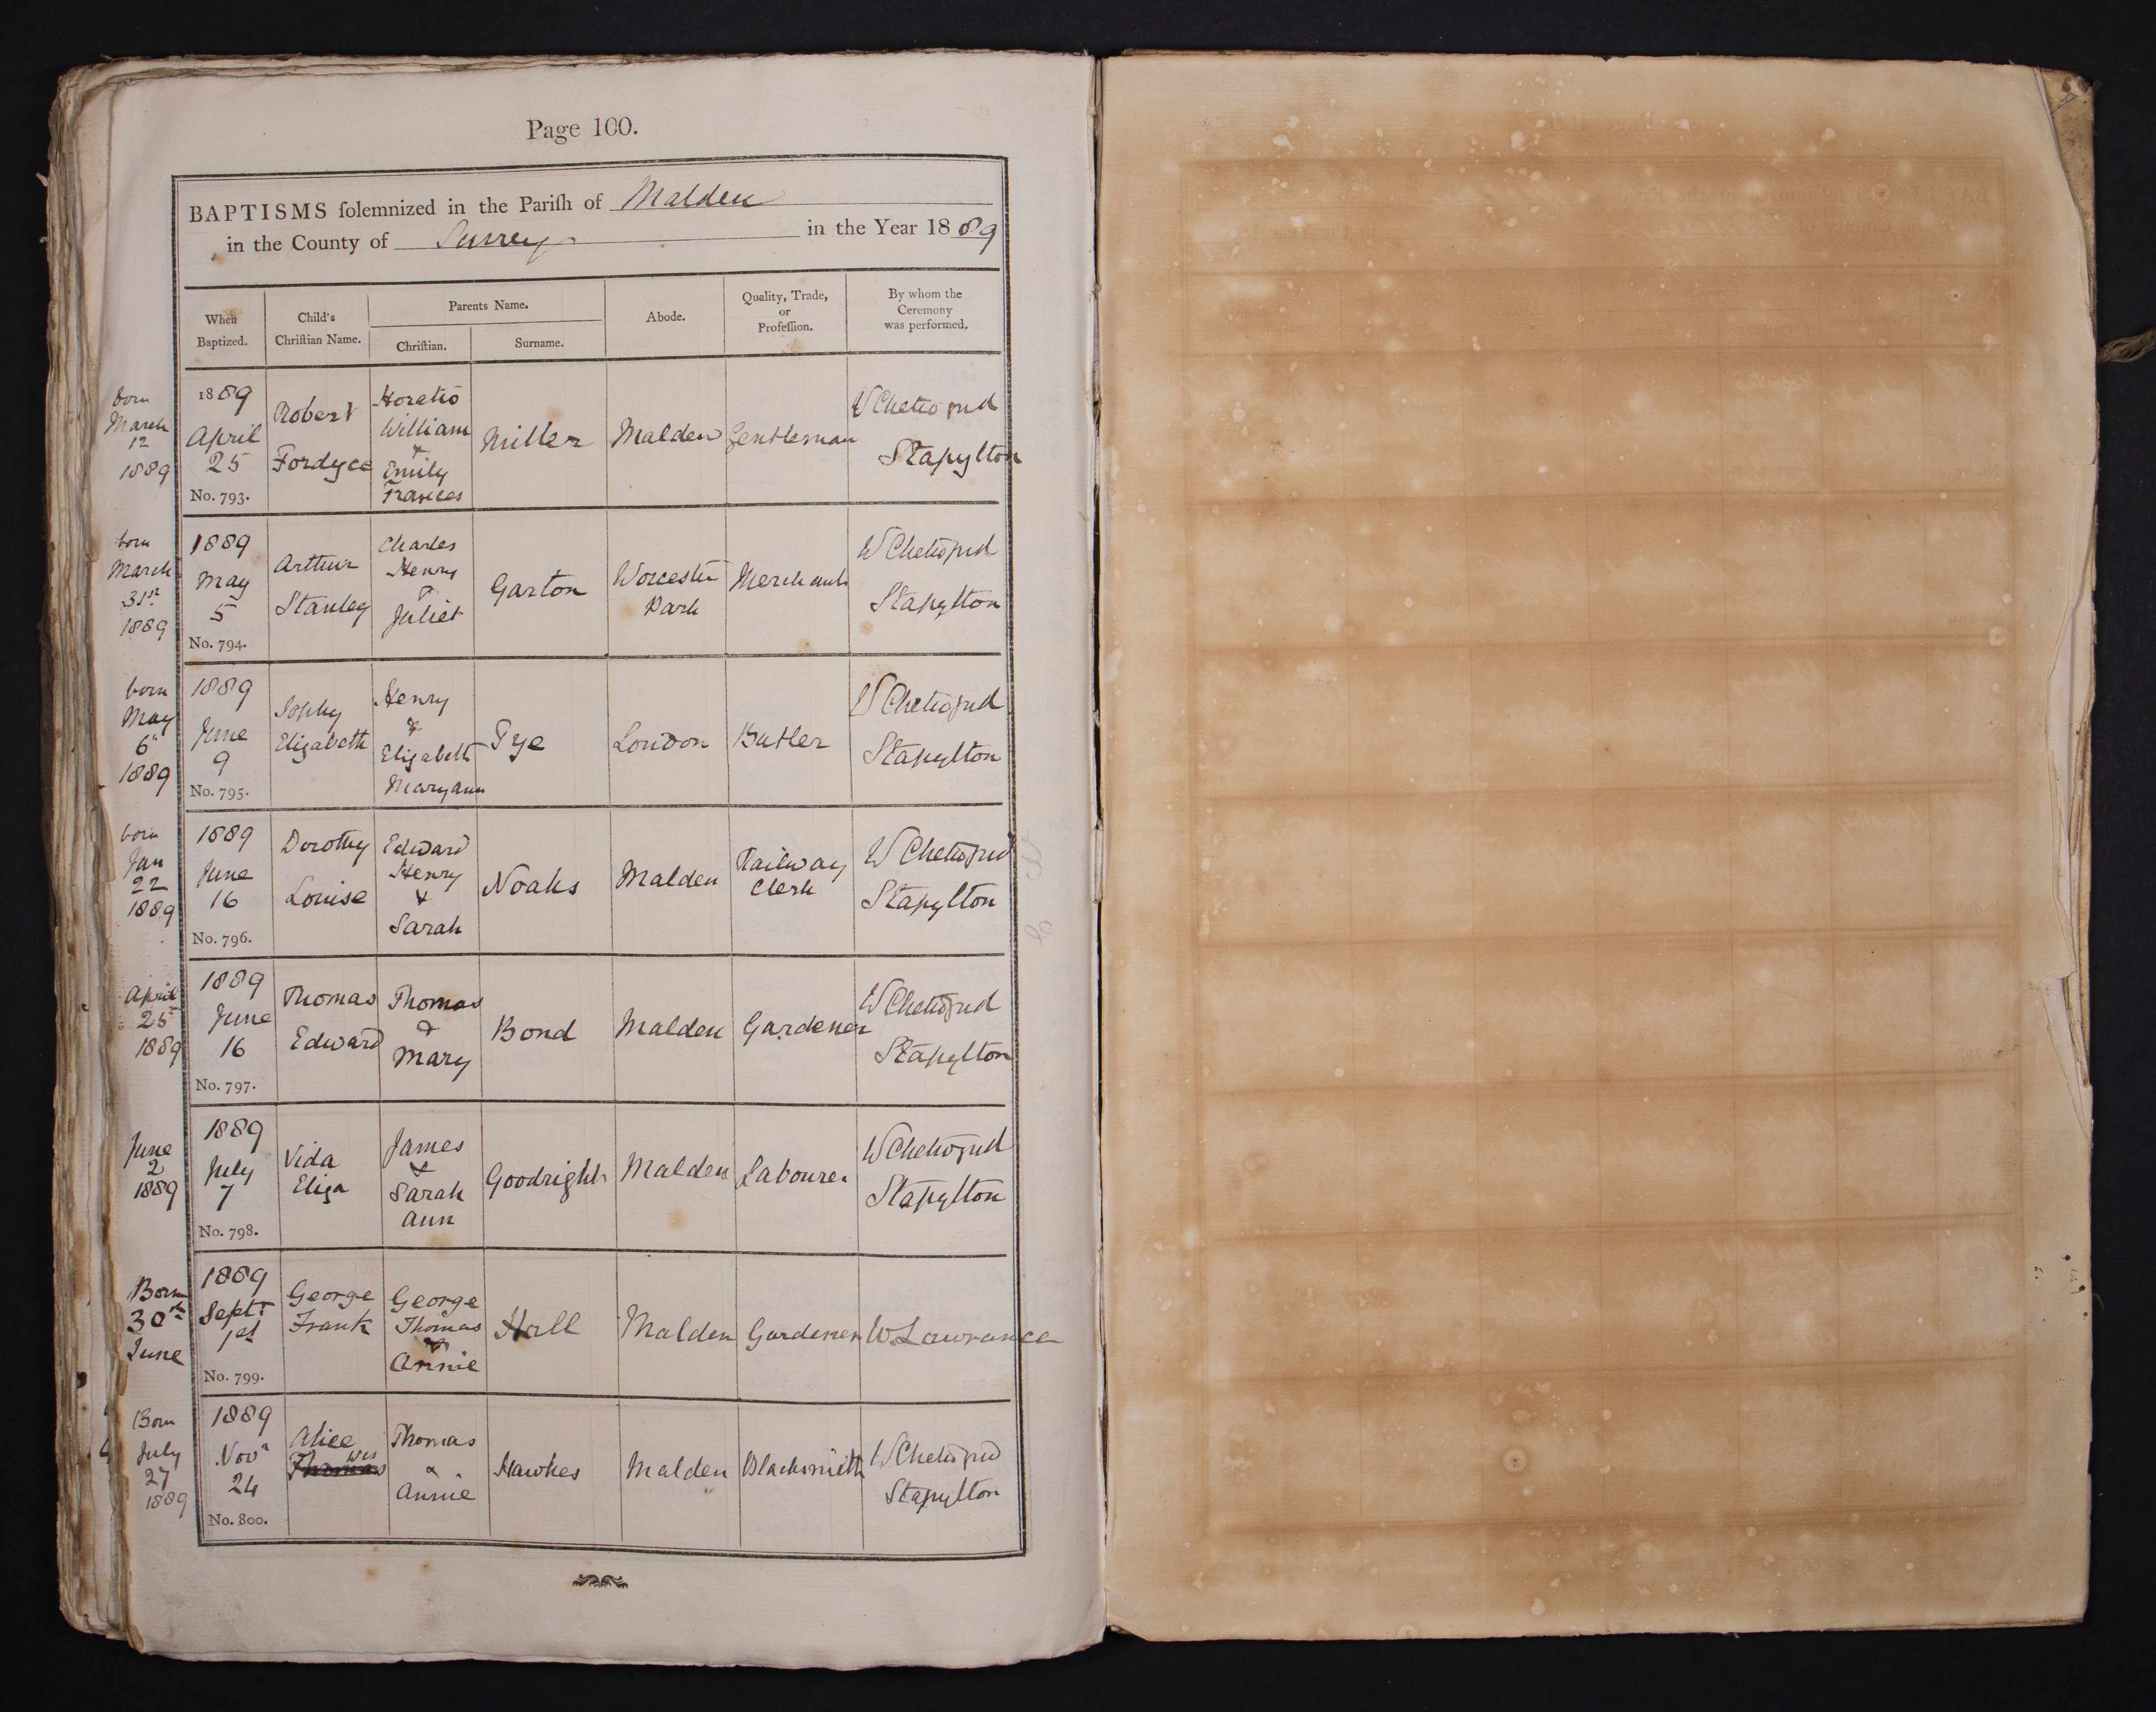 Page 100.
BAPTISMS ſolemnized in the Pariſh of Malden
in the County of Surrey in the Year 1889
When
Baptized.
Child's
Chriſtian Name.
Parents Name.
Chriſtian.
Surname.
Abode.
Quality, Trade,
or
Profeſſion.
By whom the
Ceremony
was performed.
born
March
12
1889
1889
April
25
No. 793.
Robert
Fordyce
Horatio
William
&
Emily
Frances
Miller
Malden
Gentleman
W Chetwynd
Stapylton
born
March
31st
1889
1889
May
5
No. 794.
Arthur
Stanley
Charles
Henry
&
Juliet
Garton
Worcester
Park
Merchant
W Chetwynd
Stapylton
born
May
6
1889
1889
June
9
No. 795.
Sophy
Elizabeth
Henry
&
Elizabeth
Maryann
Pye
London
Butler
W Chetwynd
Stapylton
born
Jan
22
1889
1889
June
16
No. 796.
Dorothy
Louise
Edward
Henry
&
Sarah
Noaks
Malden
Railway
Clerk
W Chetwynd
Stapylton
April
25
1889
1889
June
16
No. 797.
Thomas
Edward
Thomas
&
Mary
Bond
Malden
Gardener
W Chetwynd
Stapylton
June
2
1889
1889
July
7
No. 798.
Vida
Eliza
James
&
Sarah
Ann
Goodright
Malden
Labourer
W Chetwynd
Stapylton
Born
30th
June
1889
Septr
1st
No. 799.
George
Frank
George
Thomas
&
Annie
Hall
Malden
Gardener
W Lawrance
Born
July
27
1889
1889
Novr
24
No. 800.
Alice
Thomas
&
Annie
Hawkes
Malden
Blacksmith
W Chetwynd
Stapylton